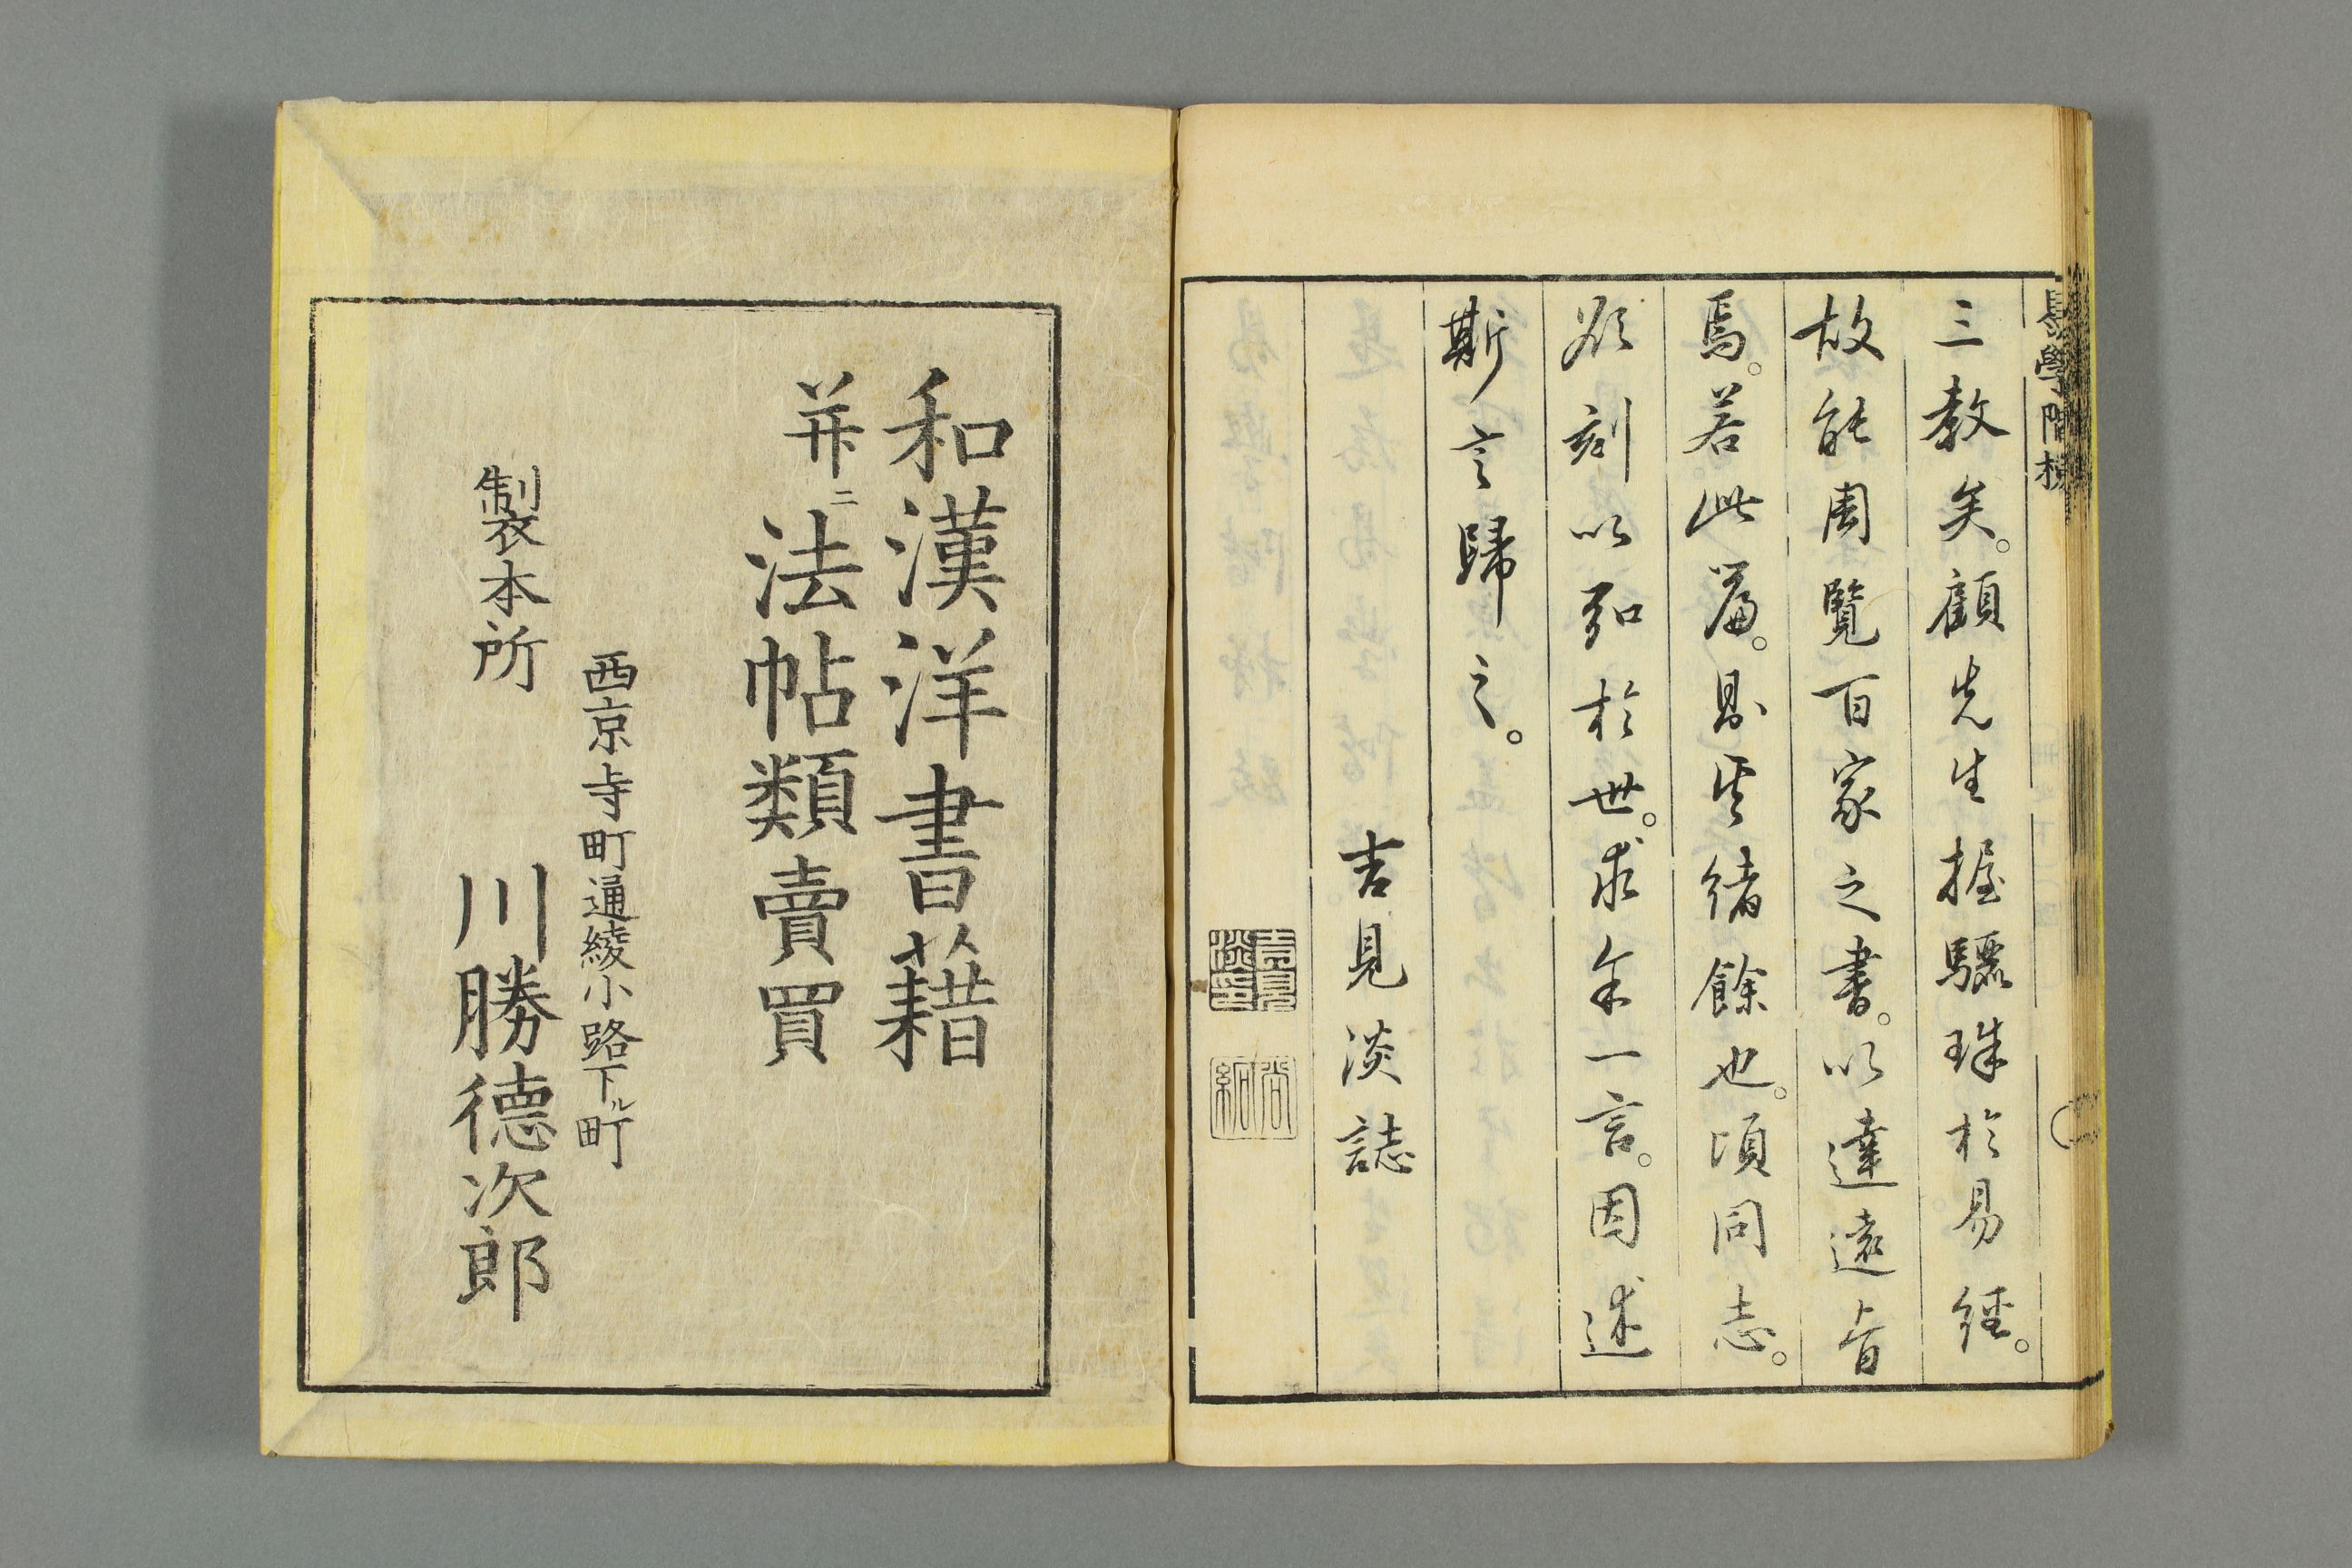 易學階梯
三教矣。顧先生握驪珠於易經。
故能周覽百家之書。以達遠旨
焉。若此篇。則其緒餘也。頃同志。
欲刻以弘於世。求余一言。因述
斯言歸之。
吉見淡誌
和漢洋書籍
并ニ法帖類賣買
西京寺町通綾小路下ル町
製本所 川勝德次郎